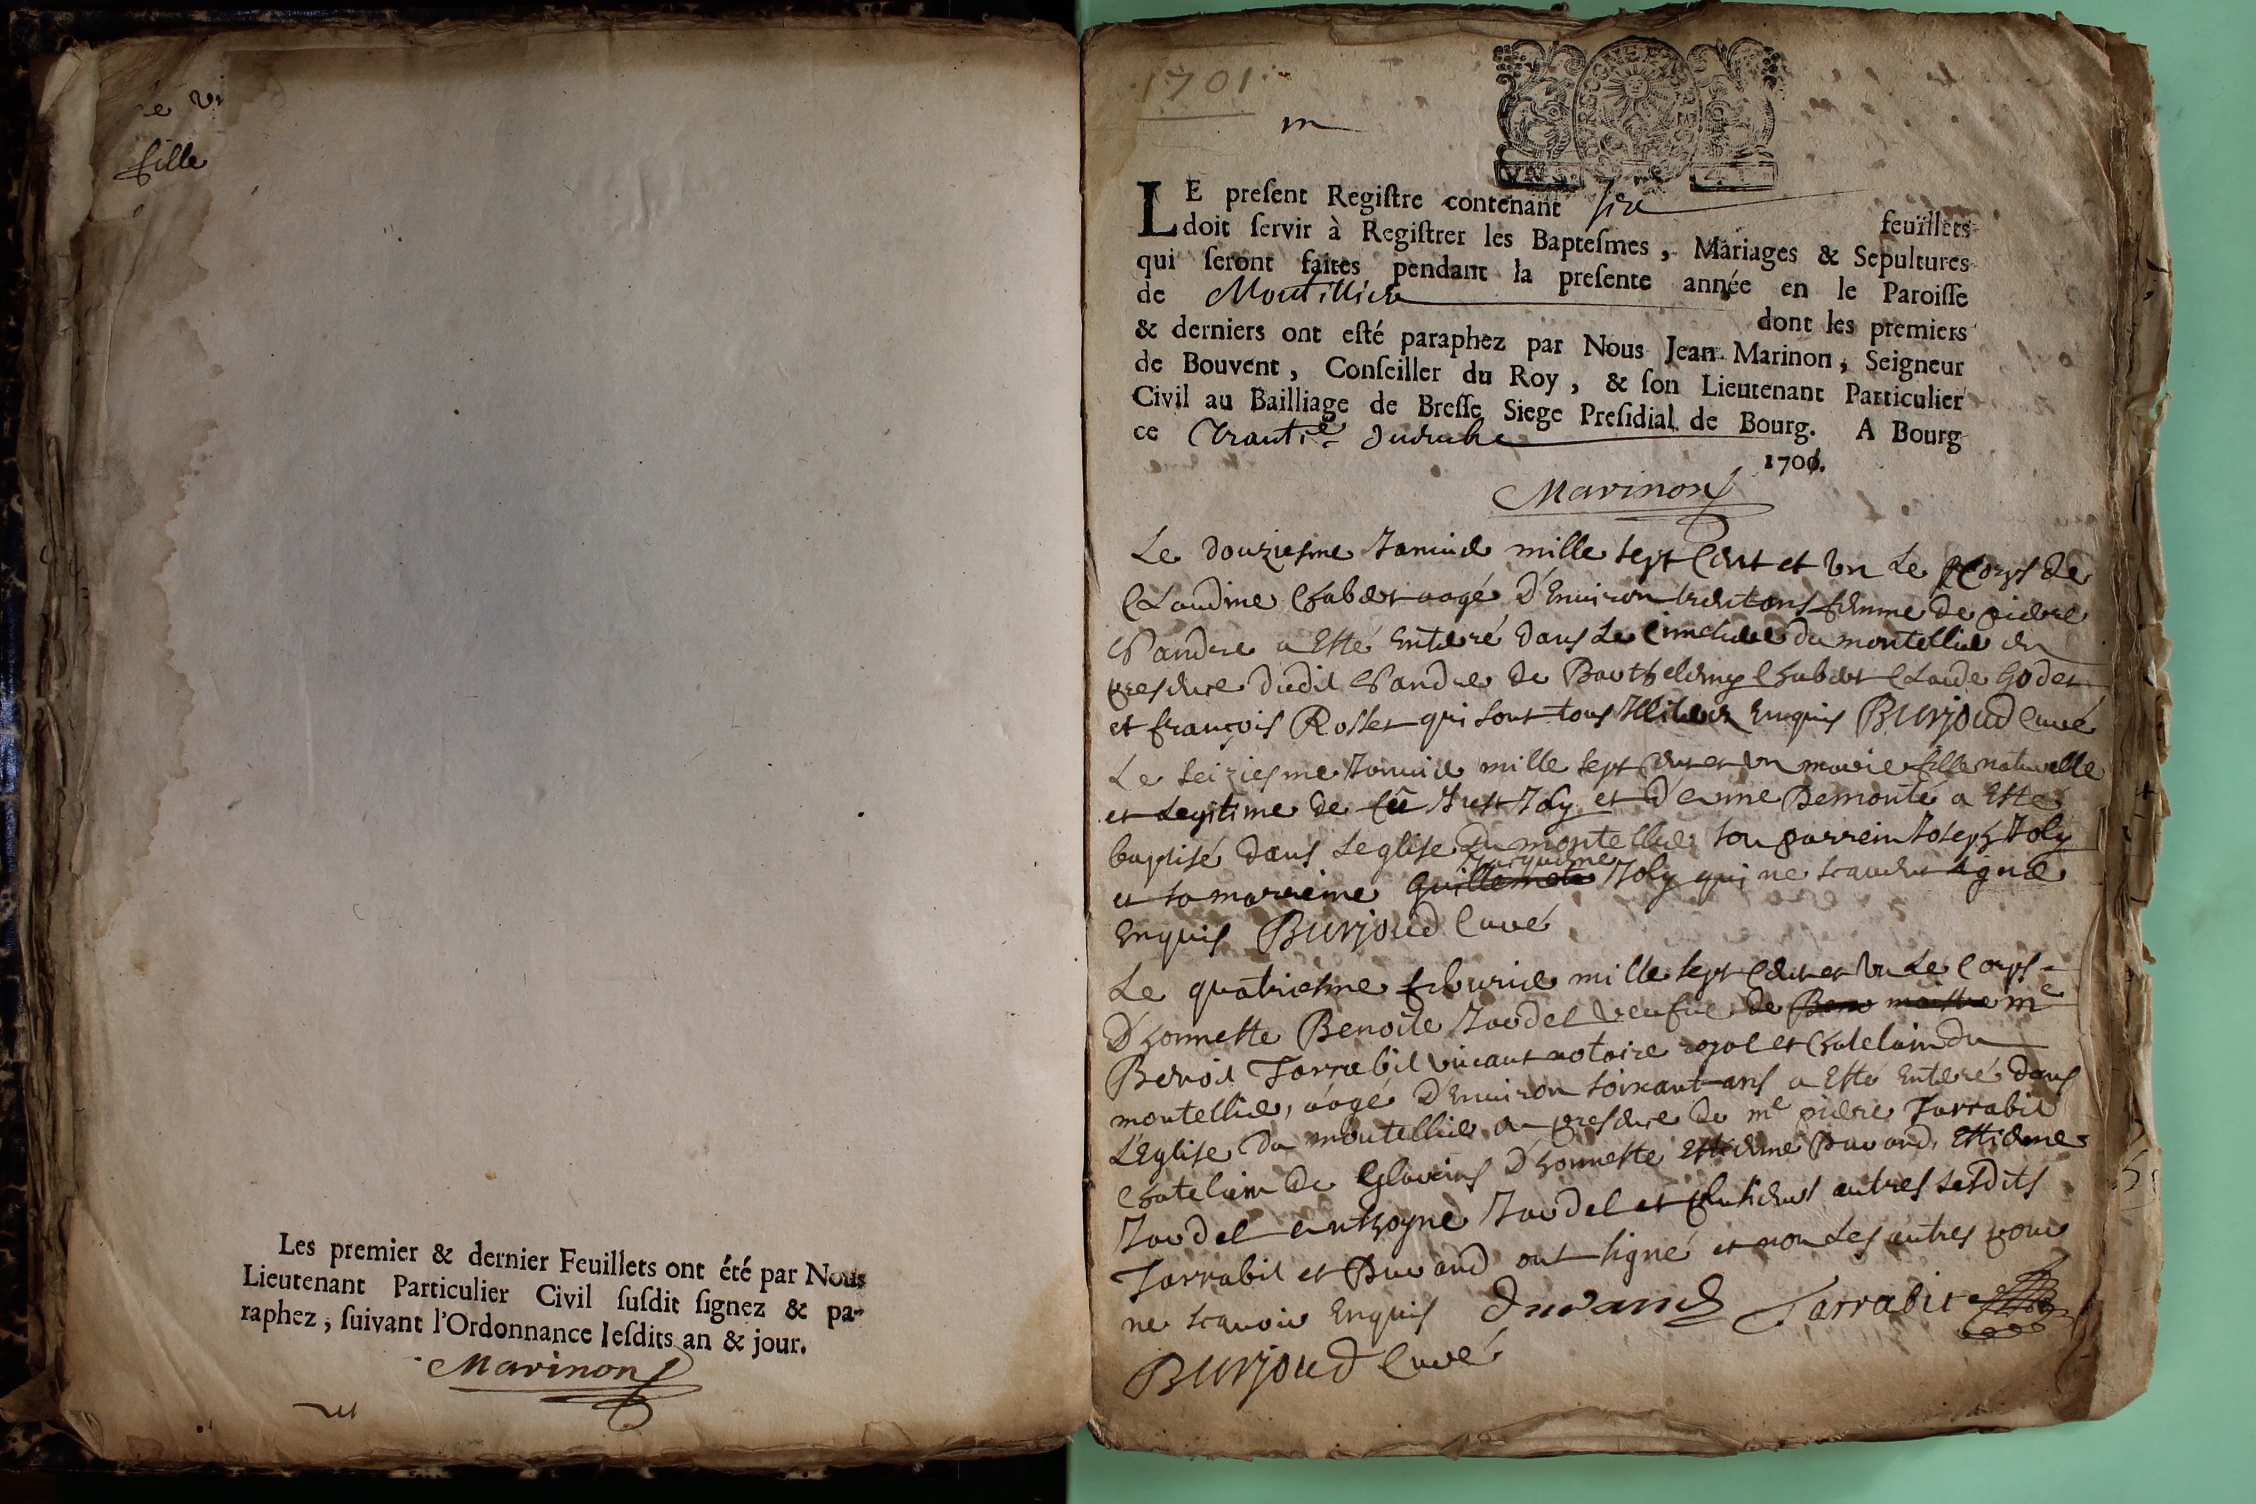 fille
Les premier & dernier Feuillets ont été par Nous
Lieutenant Particulier Civil ſuſdit ſignez & pa-
raphez, ſuivant l'Ordonnance leſdits an & jour.
Marinon
1701
LE preſent Regiſtre contenant six feuïllets
doit ſervir à Regiſtrer les Bapteſmes, Mariages & Sepultures
qui ſeront faites pendant la preſente année en le Paroiſſe
de Montillier dont les premiers
& derniers ont eſté paraphez par Nous Jean Marinon, Seigneur
de Bouvent, Conſeiller du Roy, & ſon Lieutenant Particulier
Civil au Bailliage de Breſſe Siege Preſidial de Bourg. A Bourg
ce 1700.
Marinon
Le douziesme Januier mille sept Cent et Vn Le Corps de
Claudine Chabert aagé d'Enuiron trentans femme de pierre
a Esté Enterré dans Le Cimetiere du montellier en
presence dudit de Barthelemy Chabert Claude Godet
et françois Rosset qui sont tous Illiteres Enquis Burjoud Curé
Le seiziesme Januier mille sept Cent et Vn marie fille naturelle
et Legitime de fû Just Joly et d'anne Demonté a Esté
baptisé dans Leglise du montellier son parrein Joseph Joly
et sa marreine Jacquême Joly qui ne scauent signer
Enquis Burjoud Curé
Le quatriesme feburier mille sept Cent et Vn Le Corps
d'honneste Benoite Jordel Veufue de me
Benoit Tarrabit Viuant notaire royal et Chatelain du
montellier, aagé d'Enuiron soixant ans a Esté Enterré dans
L'Eglise du montellier en presence de me pierre Tarrabit
Chatelain de Glareins d'honneste Estienne Durand, Estienne
Jordel anthoyne Jordel et plusieurs autres lesdits
Tarrabit et Durand ont signé et non Les autres pour
ne scauoir Enquis Durand Tarrabit
Burjoud Curé